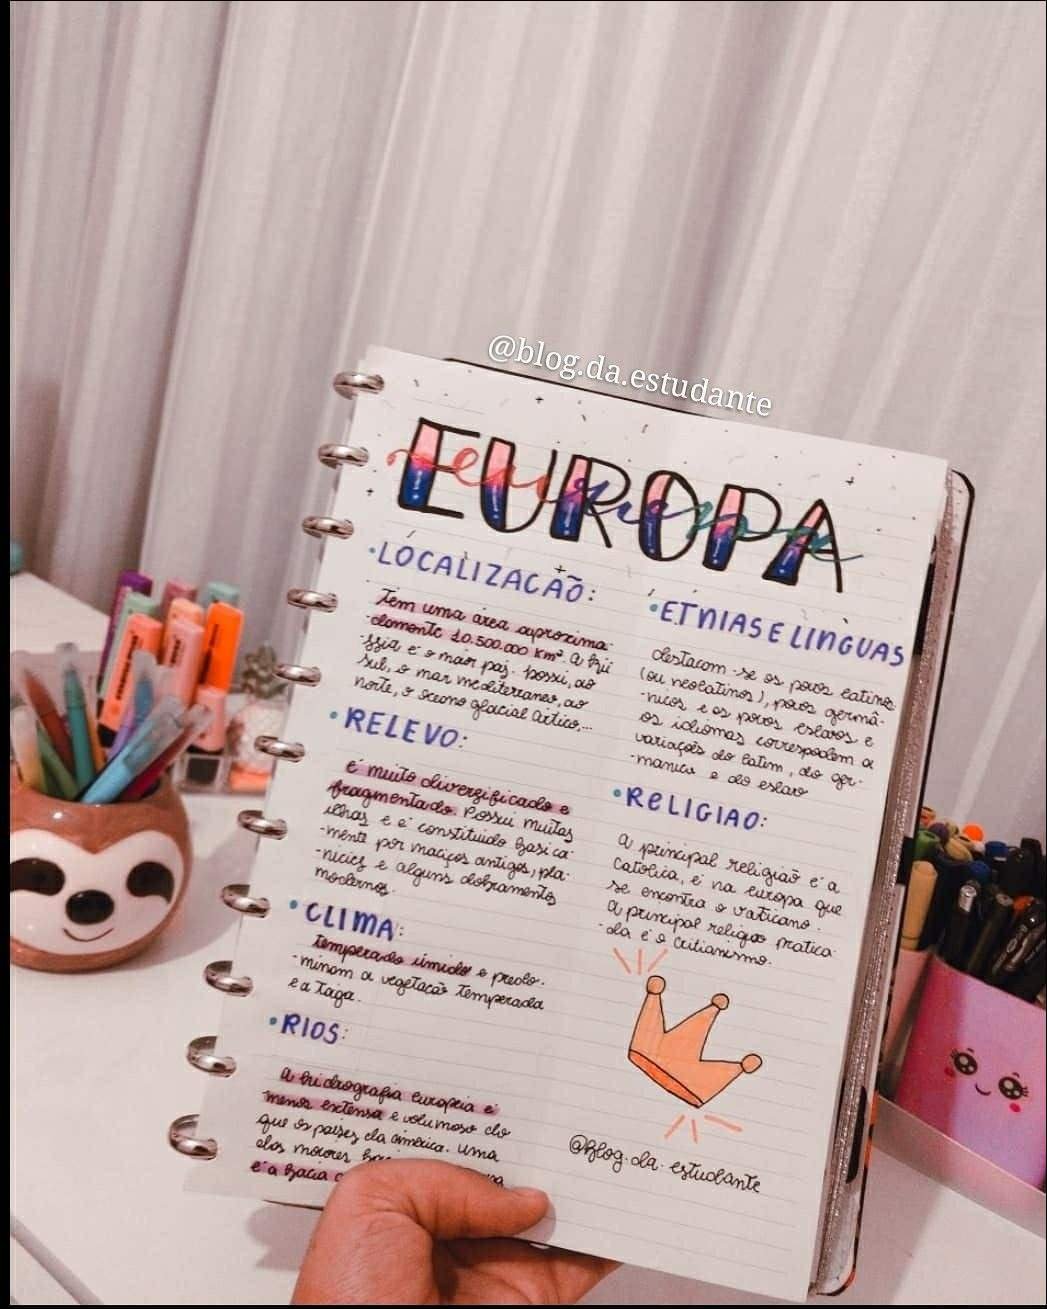 @blog.da.estudante
EUROPA
europa
• LOCALIZAÇÃO:
Tem uma área aproxima-
damente 10.500.000 Km². A
é o maior Possui, ao
sul, o mar mediterraneo, ao
norte, o oceano glacial ártico,...
• RELEVO:
é muito diversificado e
fragmentado. Possui muitas
ilhas e é constituido basica-
-mente por maciços antigos, pla-
-nicies e alguns dobramentos
modernos.
• CLIMA:
temperado úmido e predo-
-minam a vegetação temperada
e a Taiga.
• RIOS:
A hidrografia europeia é
menos extensa e volumosa do
que os países da américa. Uma
das maiores
é a bacia
• ETNIAS E LINGUAS
destacam-se os povos latinos
(ou neolatinos), povos germâ-
-nicos e os povos eslavos e
os idiomas correspondem a
variações do latim, do ger-
-manico e do eslavo
• RELIGIAO:
A principal religião é a
Católica, é na europa que
se encontra o vaticano.
A principal religião pratica-
-da é o Critianismo.
@blog.da.estudante